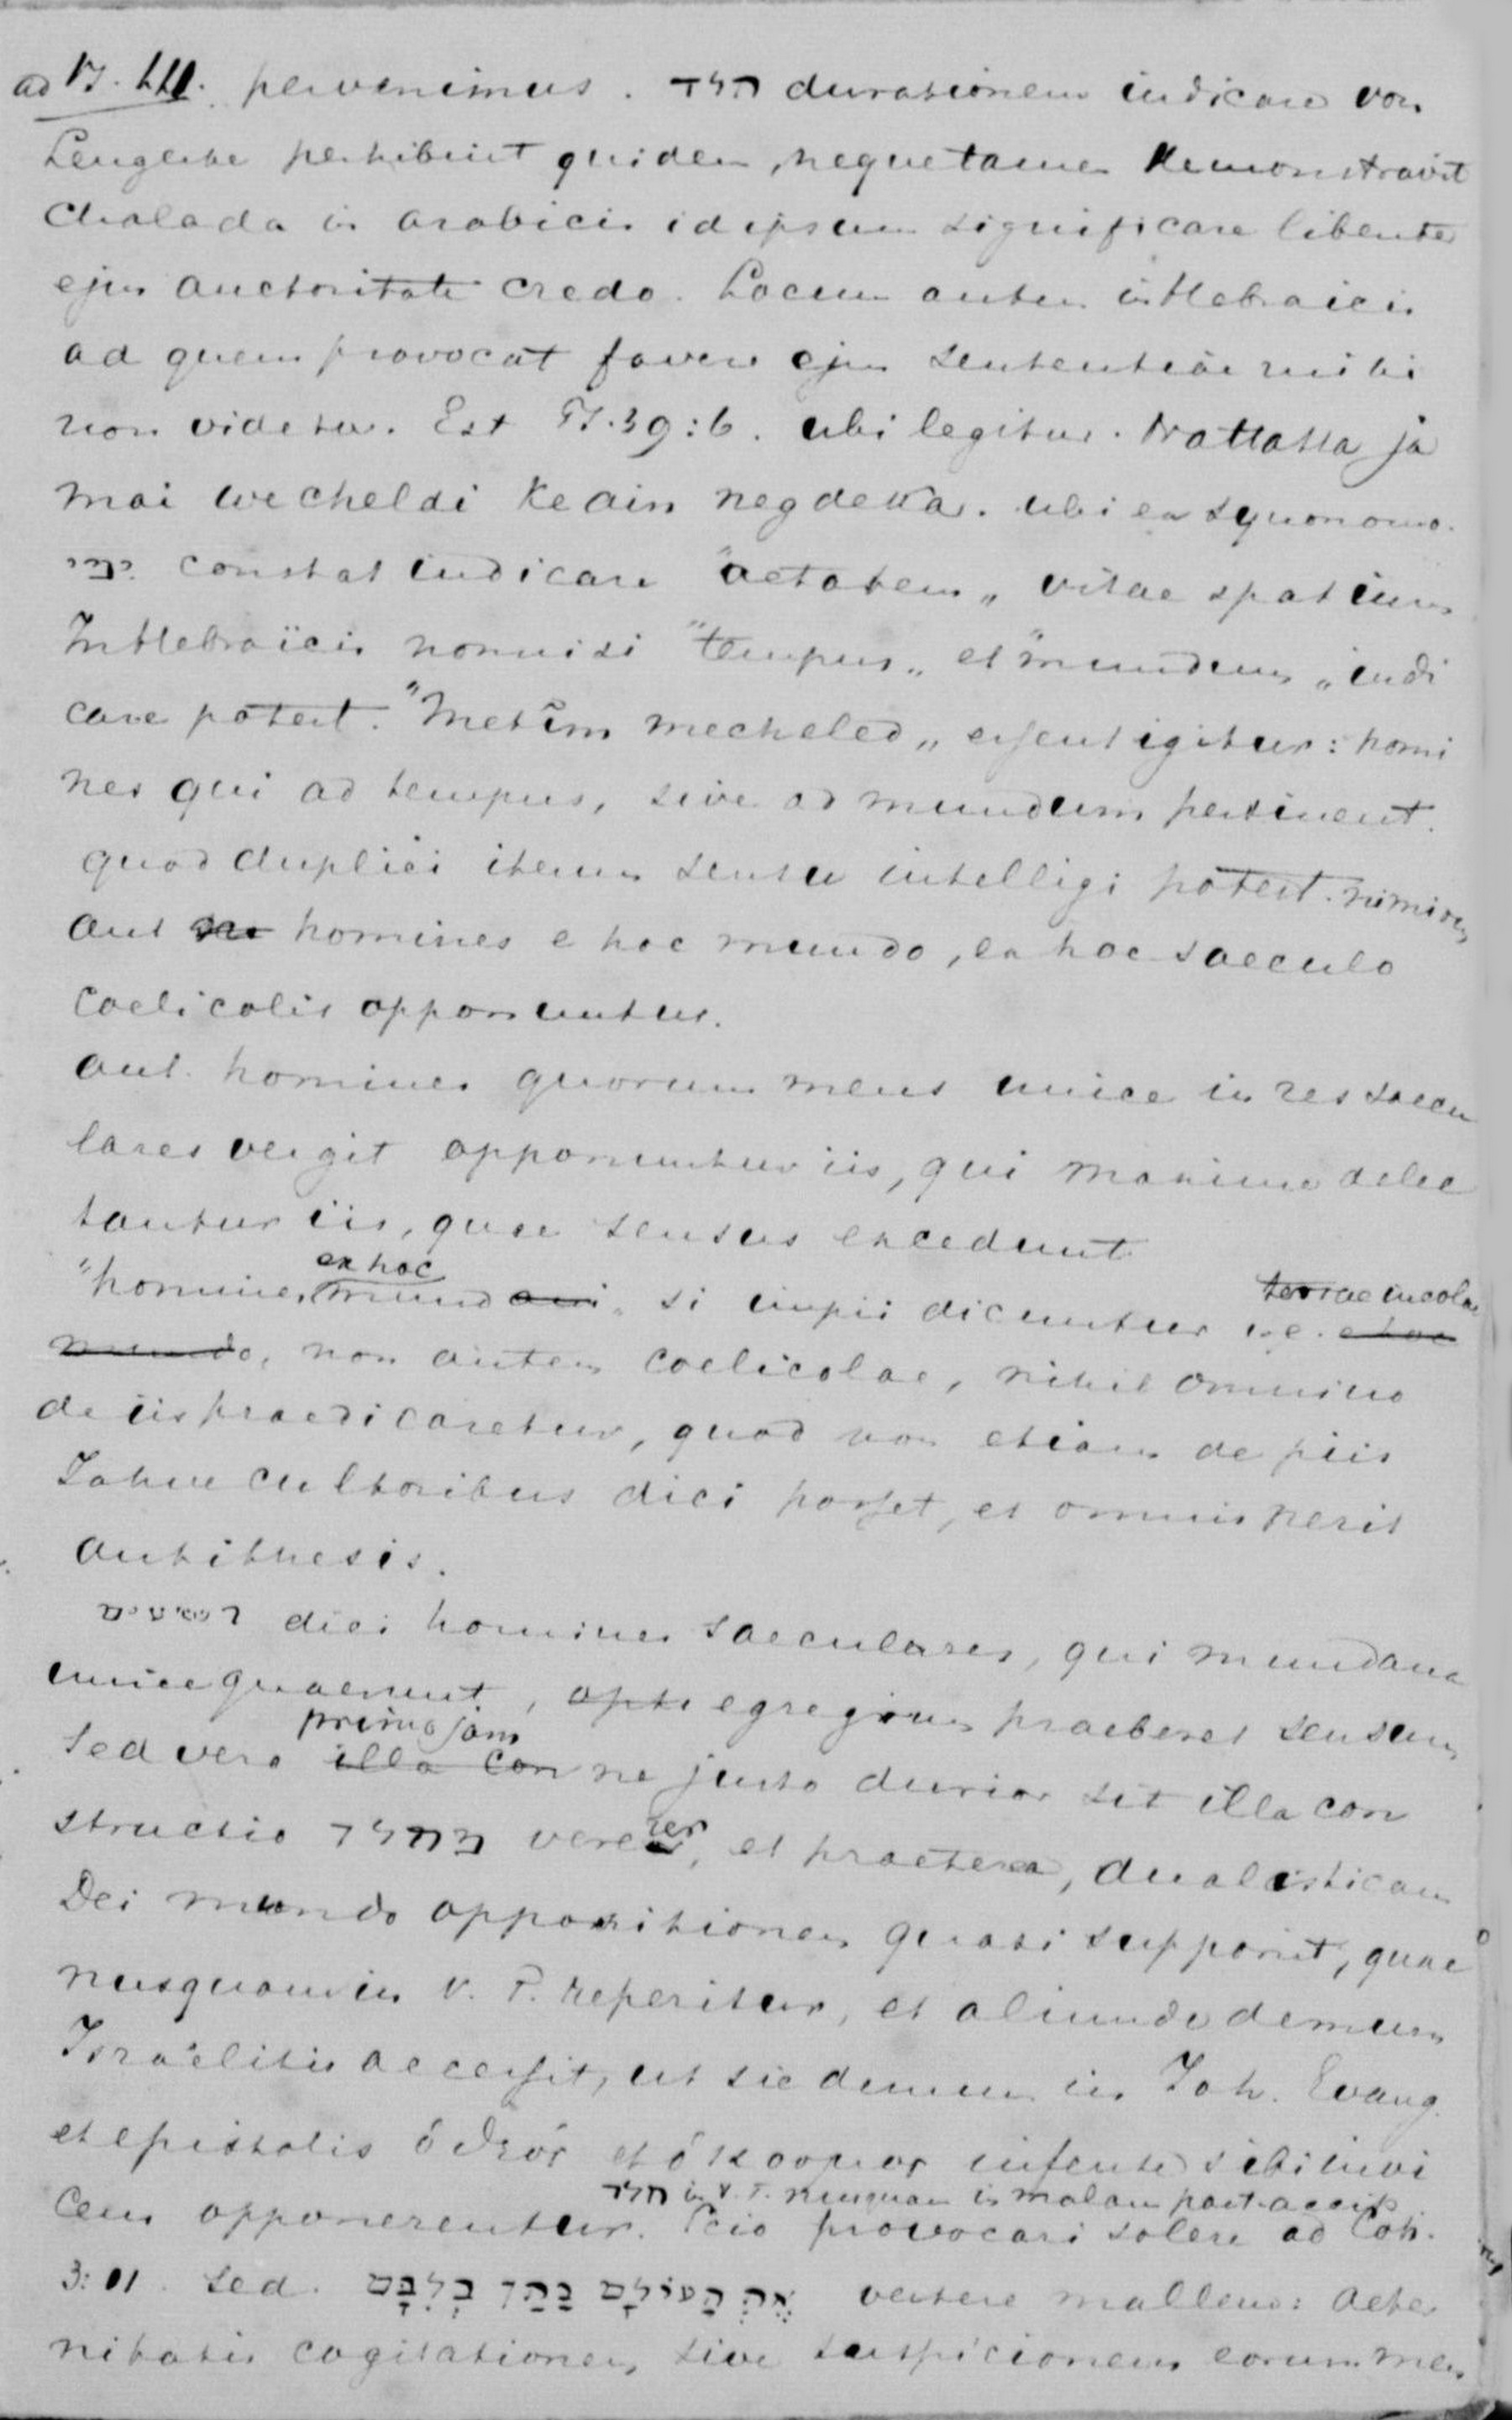 ad Ps. LLI. pervenimus. חלד durationem indicare von
Lengerke perhibuit quidem, neque tamen demonstravit
Chalada in arabicis id ipsum significare libenter
ejus auctoritate credo. Locum autem in Hebraicis
ad quem provocat favere ejus sententiae mihi
non videtur. Est Ps. 39:6. ubi legitur. Nattatta ja
mai wecheldi keain negdeka. ubi ex synonomo
ימי constat indicare "aetatem„ vitae spatium
In Hebraïcis nonnisi "tempus„ et "mundum„ indi
care potest. "Metîm mecheled„ essent igitur: homi
nes qui ad tempus, sive ad mundum pertinent.
quod duplici iterum sensu intelligi potest. nimirum
aut homines e hoc mundo, ex hoc saeculo
coelicolis opponuntur.
aut homines quorum mens unice in res saecu
lares vergit opponuntur iis, qui maxime delec
tantur iis, quae sensus excedunt
"homines ex hoc mundo„ si impii dicuntur i.e. terrae incolae
mundo, non autem coelicolae, nihil omnino
de iis praedicaretur, quod non etiam de piis
Jahve cultoribus dici posset, et omnis perit
antithesis.
dici homines saeculares, qui mundana
unice quaerunt, apte egregium praeberet sensum
sed vero primo jam illa con ne justo durior sit illa con
structio מחלד vereor, et praeterea, dualisticam
Dei mundo oppositionem quasi supponit, quae
nusquam in V. T. reperitur, et aliunde demum
Israëlitis accessit, ut sic demum in Joh. Evang.
et epistolis ὁ θεός et ὁ κοσμος infense sibi invi
חלד in V. T. nunquam in malam part. accip.
cem opponerentur. Scio provocari solere ad Coh.
3:11. sed. אֶת הָעוֹלָם נָתַן בְּלִבָּם vertere mallem: aeter
nitatis cogitationem, sive suspicionem eorum men